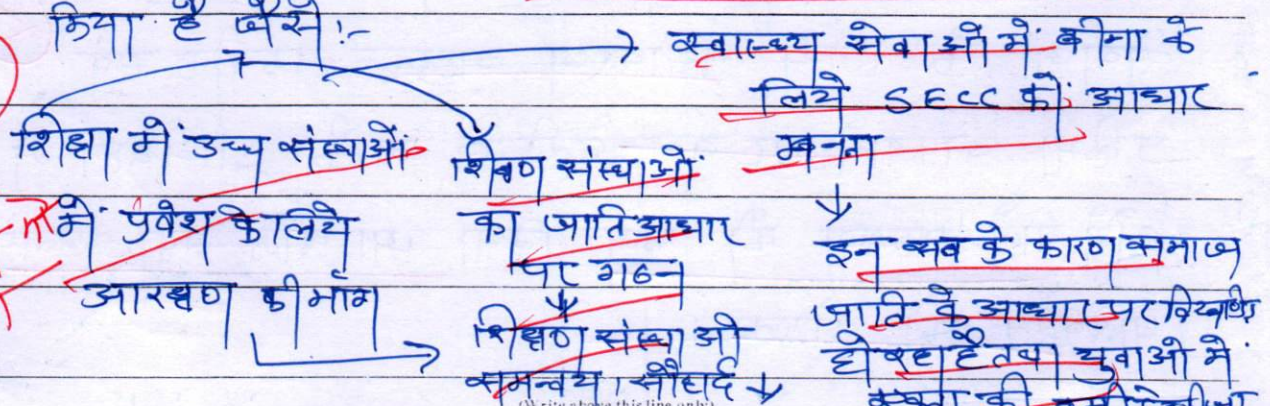 किया है जैसे:-
शिक्षा में उच्च संस्थाओं
में प्रवेश के लिये
आरक्षण की माँग
शिक्षण संस्थाओं
का जाति आधार
पर गठन
शिक्षण संस्थाओ
समन्वय। सौहार्द ↓
स्वास्थ्य सेवाओ में बीमा के
लिये SECC को आधार
बनना
इन सब के कारण समाज
जाति के आधार पर
हो रहा है तथा युवाओ में
(Write above this line only)